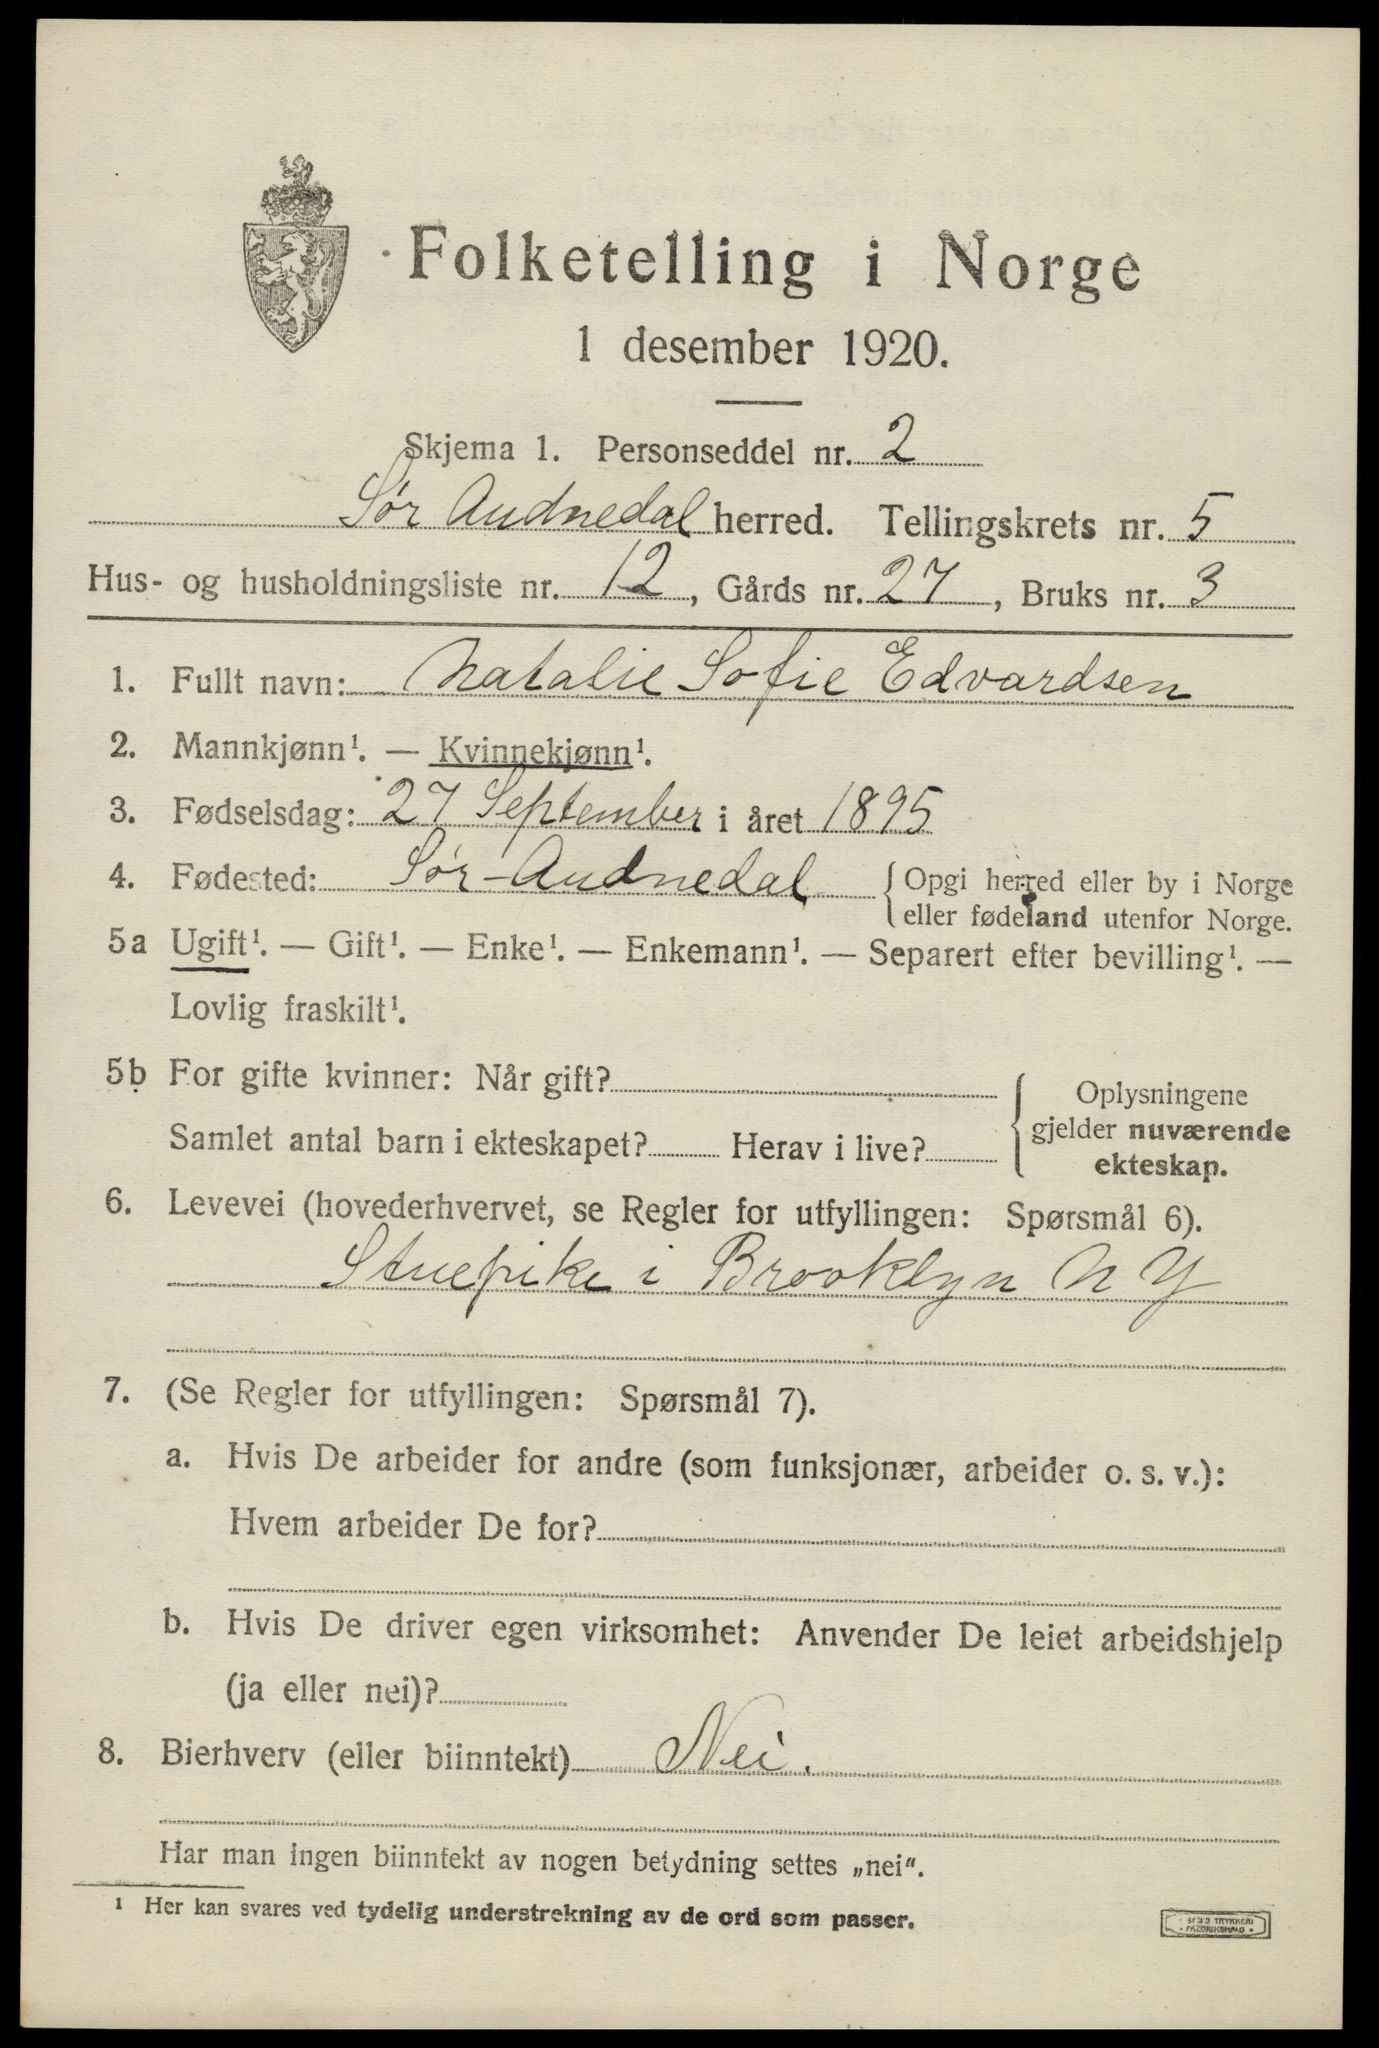 Folketelling i Norge
1 desember 1920.
Skjema 1. Personseddel nr. 2
Sør Audnedal herred. Tellingskrets nr. 5
Hus- og husholdningsliste nr. 12, Gårds nr. 27, Bruks nr. 3
1. Fullt navn: Natalie Sofie Edvardsen
2. Mannkjønn¹. — Kvinnekjønn¹.
3. Fødselsdag: 27 September i året 1895
4. Fødested: Sør-Audnedal { Opgi herred eller by i Norge
eller fødeland utenfor Norge.
5a Ugift¹. — Gift¹. — Enke¹. — Enkemann¹. — Separert efter bevilling¹. —
Lovlig fraskilt¹.
5b For gifte kvinner: Når gift?
Samlet antal barn i ekteskapet? Herav i live?
{ Oplysningene
gjelder nuværende
ekteskap.
6. Levevei (hovederhvervet, se Regler for utfyllingen: Spørsmål 6).
Stuepike i Brooklyn N Y
7. (Se Regler for utfyllingen: Spørsmål 7).
a. Hvis De arbeider for andre (som funksjonær, arbeider o. s. v.):
Hvem arbeider De for?
b. Hvis De driver egen virksomhet: Anvender De leiet arbeidshjelp
(ja eller nei)?
8. Bierhverv (eller biinntekt) Nei.
Har man ingen biinntekt av nogen betydning settes „nei“.
¹ Her kan svares ved tydelig understrekning av de ord som passer.
TRYKKERI
FREDRIKSHALD